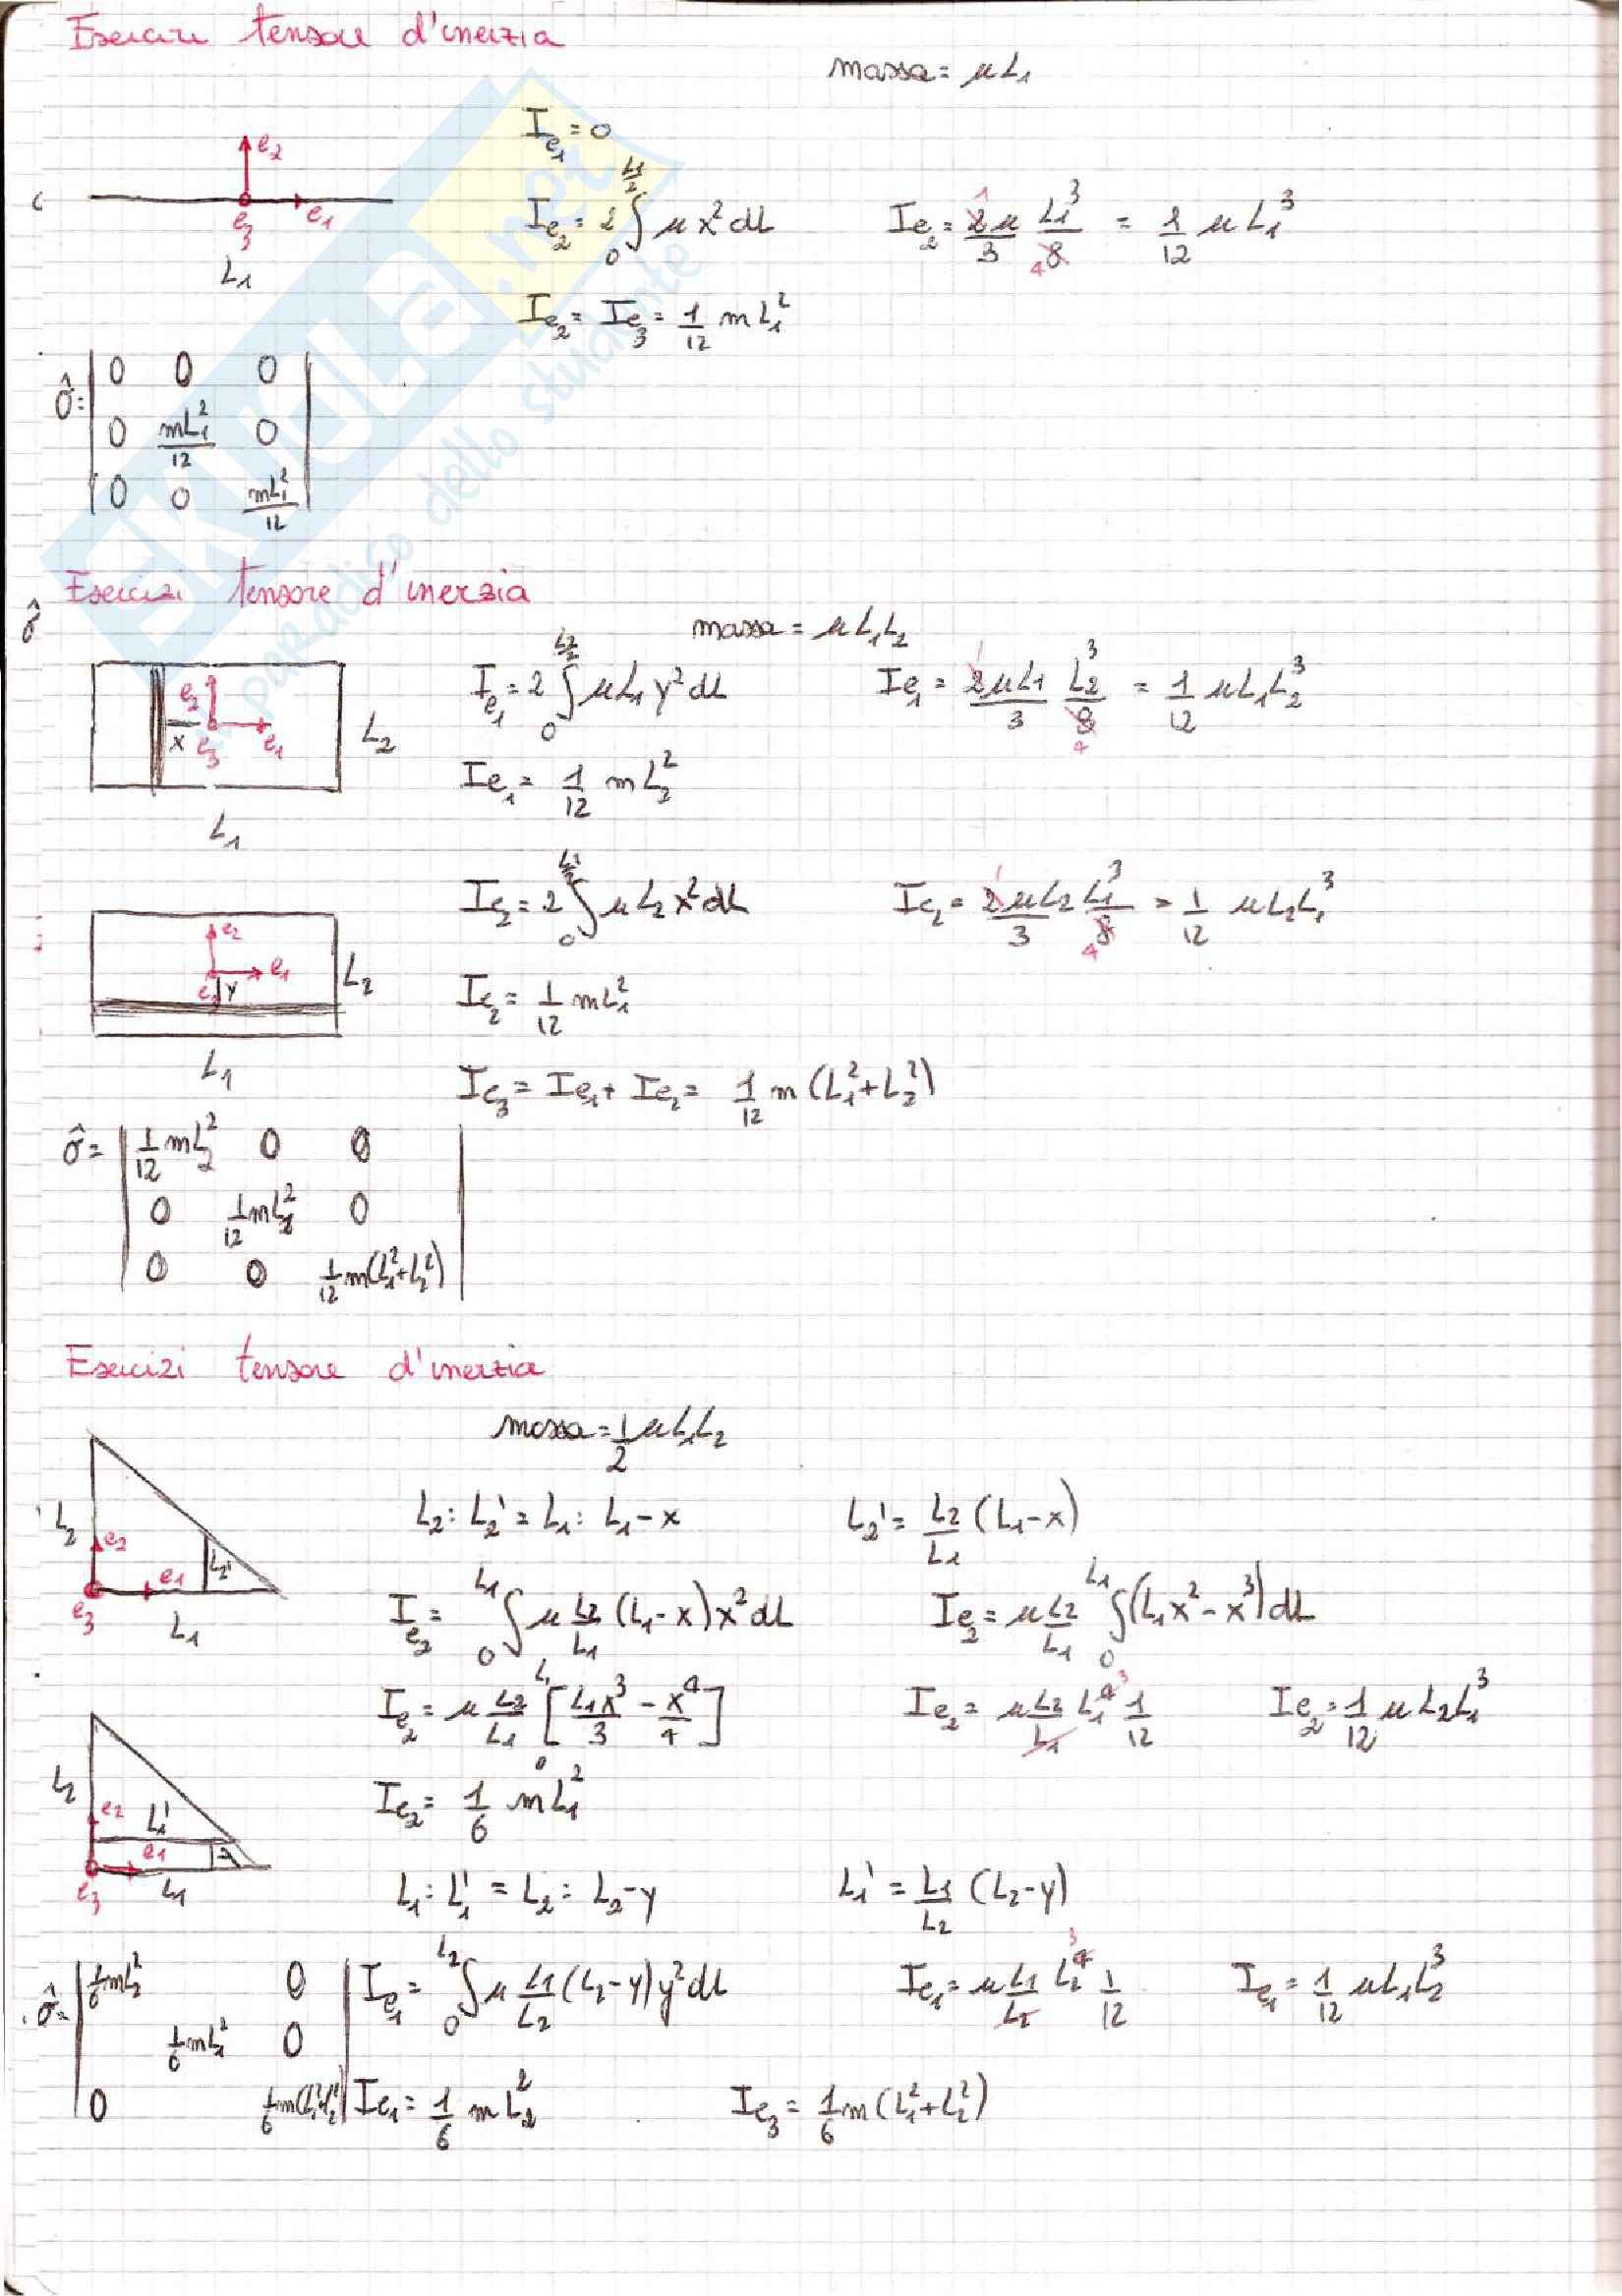 Esercizi tensore d'inerzia
massa = μL₁
I_e₁ = 0
e₂
e₃ e₁
L₁
I_e₂ = 2 ∫₀^(L₁/2) μ x² dL   I_e₂ = 2μ/3 L₁³/8 = 1/12 μ L₁³
I_e₂ = I_e₃ = 1/12 m L₁²
σ̂ = | 0 0 0 |
| 0 mL₁²/12 0 |
| 0 0 mL₁²/12 |
Esercizi tensore d'inerzia
σ̂
massa = μL₁L₂
e₂
x e₃ e₁
L₂
L₁
I_e₁ = 2 ∫₀^(L₂/2) μL₁ y² dL   I_e₁ = 2μL₁/3 L₂³/8 = 1/12 μL₁L₂³
I_e₁ = 1/12 m L₂²
I_e₂ = 2 ∫₀^(L₁/2) μL₂ x² dL   I_e₂ = 2μL₂/3 L₁³/8 = 1/12 μL₂L₁³
e₂
e₁
e₃ y
L₂
L₁
I_e₂ = 1/12 mL₁²
I_e₃ = I_e₁ + I_e₂ = 1/12 m (L₁² + L₂²)
σ̂ = | 1/12 mL₂² 0 0 |
| 0 1/12 mL₁² 0 |
| 0 0 1/12 m(L₁²+L₂²) |
Esercizi tensore d'inerzia
massa = 1/2 μL₁L₂
L₂ e₂ L₂'
e₁
e₃ L₁
L₂ : L₂' = L₁ : L₁-x   L₂' = L₂/L₁ (L₁-x)
I_e₂ = ∫₀^(L₁) μ L₂/L₁ (L₁-x) x² dL   I_e₂ = μ L₂/L₁ ∫₀^(L₁) (L₁x² - x³) dL
I_e₂ = μ L₂/L₁ [L₁x³/3 - x⁴/4]₀^(L₁)   I_e₂ = μ L₂/L₁ L₁⁴ 1/12   I_e₂ = 1/12 μ L₂L₁³
I_e₂ = 1/6 mL₁²
L₂
e₂ L₁'
e₁
e₃ L₁
L₁ : L₁' = L₂ : L₂-y   L₁' = L₁/L₂ (L₂-y)
I_e₁ = ∫₀^(L₂) μ L₁/L₂ (L₂-y) y² dL   I_e₁ = μ L₁/L₂ L₂⁴ 1/12   I_e₁ = 1/12 μL₁L₂³
σ̂ = | 1/6 mL₂² 0 |
| 1/6 mL₁² 0 |
| 0 1/6 m(L₁²+L₂²) |
I_e₁ = 1/6 m L₂²   I_e₃ = 1/6 m (L₁² + L₂²)
SKUOLA.net
paradiso dello studente